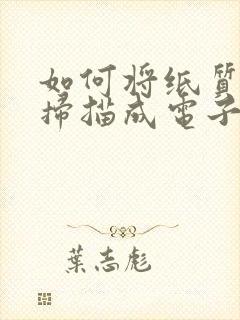 如何将纸质
掃描成電子
葉志彪